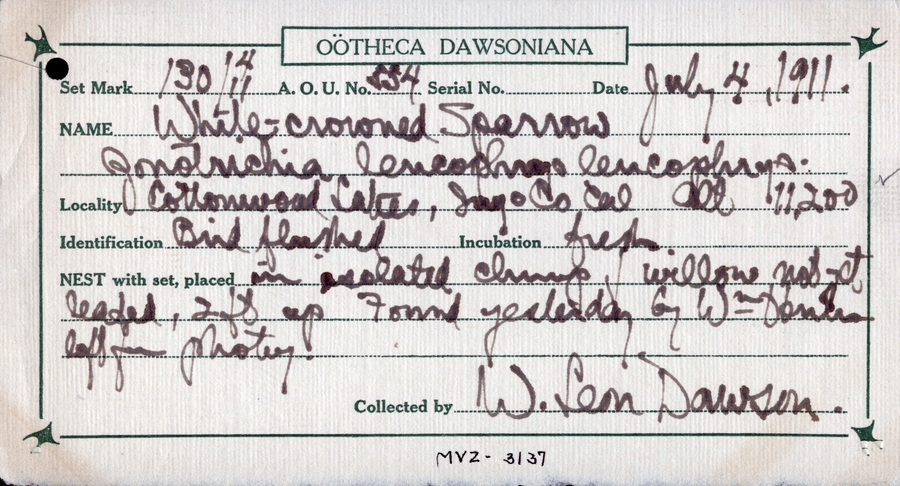 OÖTHECA DAWSONIANA
Set Mark 130/4 11 A. O. U. No. 554 Serial No. Date July 4, 1911.
NAME White-crowned Sparrow
Zonotrichia leucophrys leucophrys.
Locality Cottonwood Lakes, Inyo Co Cal Alt 11,200
Identification Bird flushed Incubation fresh
NEST with set, placed in isolated clump of willow not yet
leafed, 2 ft up Found yesterday by Wm
left for photog.
Collected by W. Leon Dawson.
MVZ- 3137